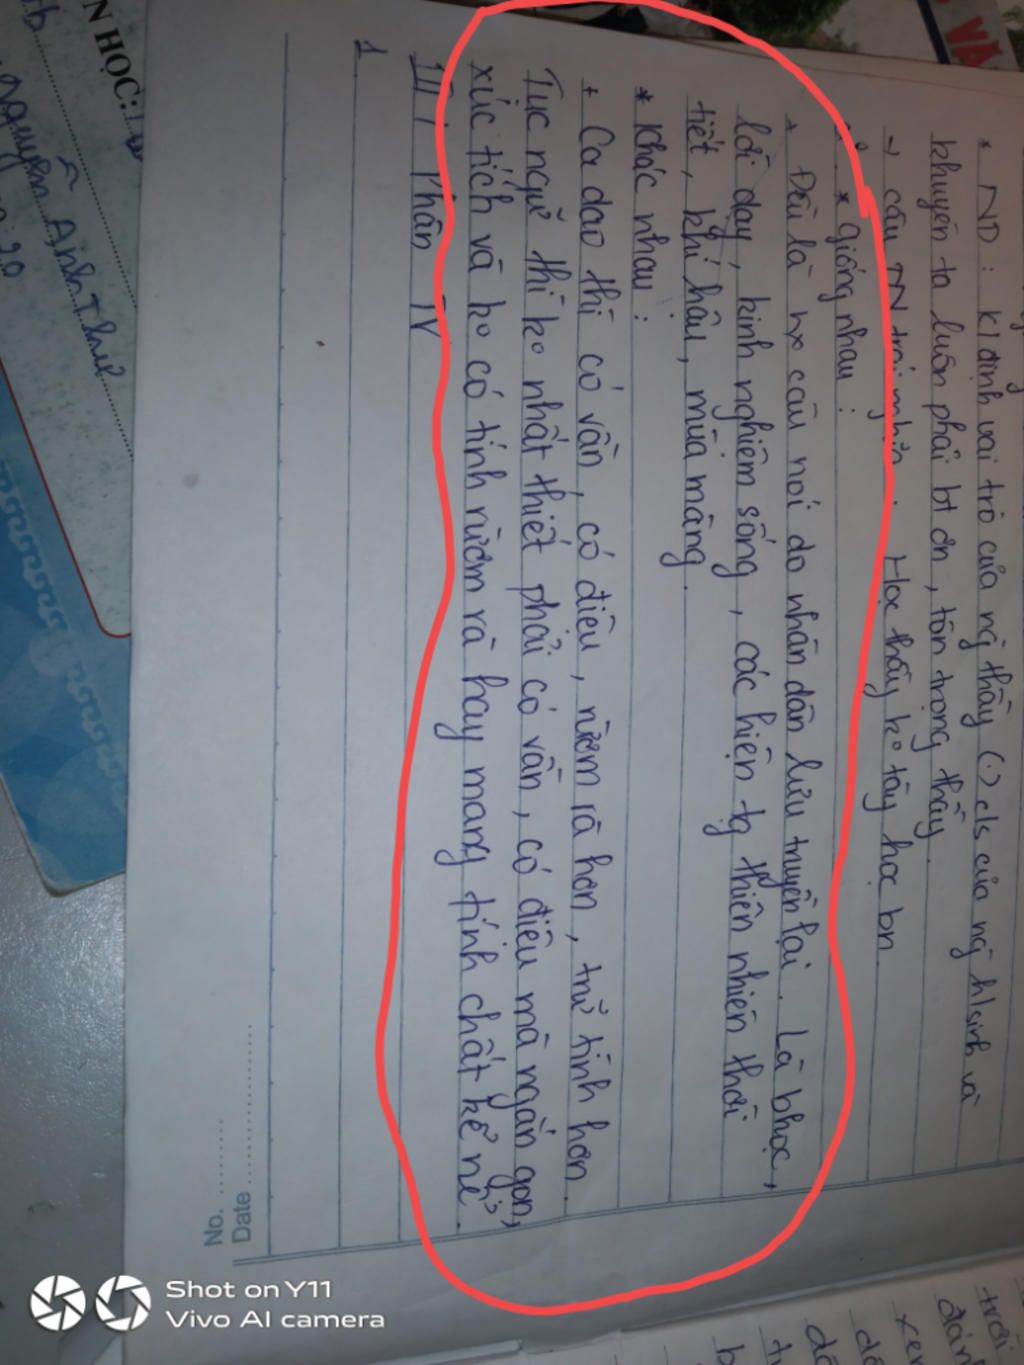 * ND: k/định vai trò của ng` thầy (.) c/s của ng` h/sinh và
khuyên ta luôn phải bt ơn, tôn trọng thầy
→ câu TN trái nghĩa. Học thầy ko tày học bn.
* giống nhau:
+ Đều là n~ câu nói do nhân dân lưu truyền lại. Là bhọc,
lời dạy, kinh nghiệm sống, các hiện tg thiên nhiên thời
tiết, khí hậu, mùa màng.
* khác nhau:
+ Ca dao thì có vần, có điệu, rườm rà hơn, trữ tình hơn.
Tục ngữ thì ko nhất thiết phải có vần, có điệu mà ngắn gọn,
xúc tích và ko có tính rườm rà hay mang tính chất kể nể.
III, Phần TV
1
No. ........
Date ....................
N HỌC:
Nguyễn Ánh Thư
20
VĂ
Shot on Y11
Vivo AI camera